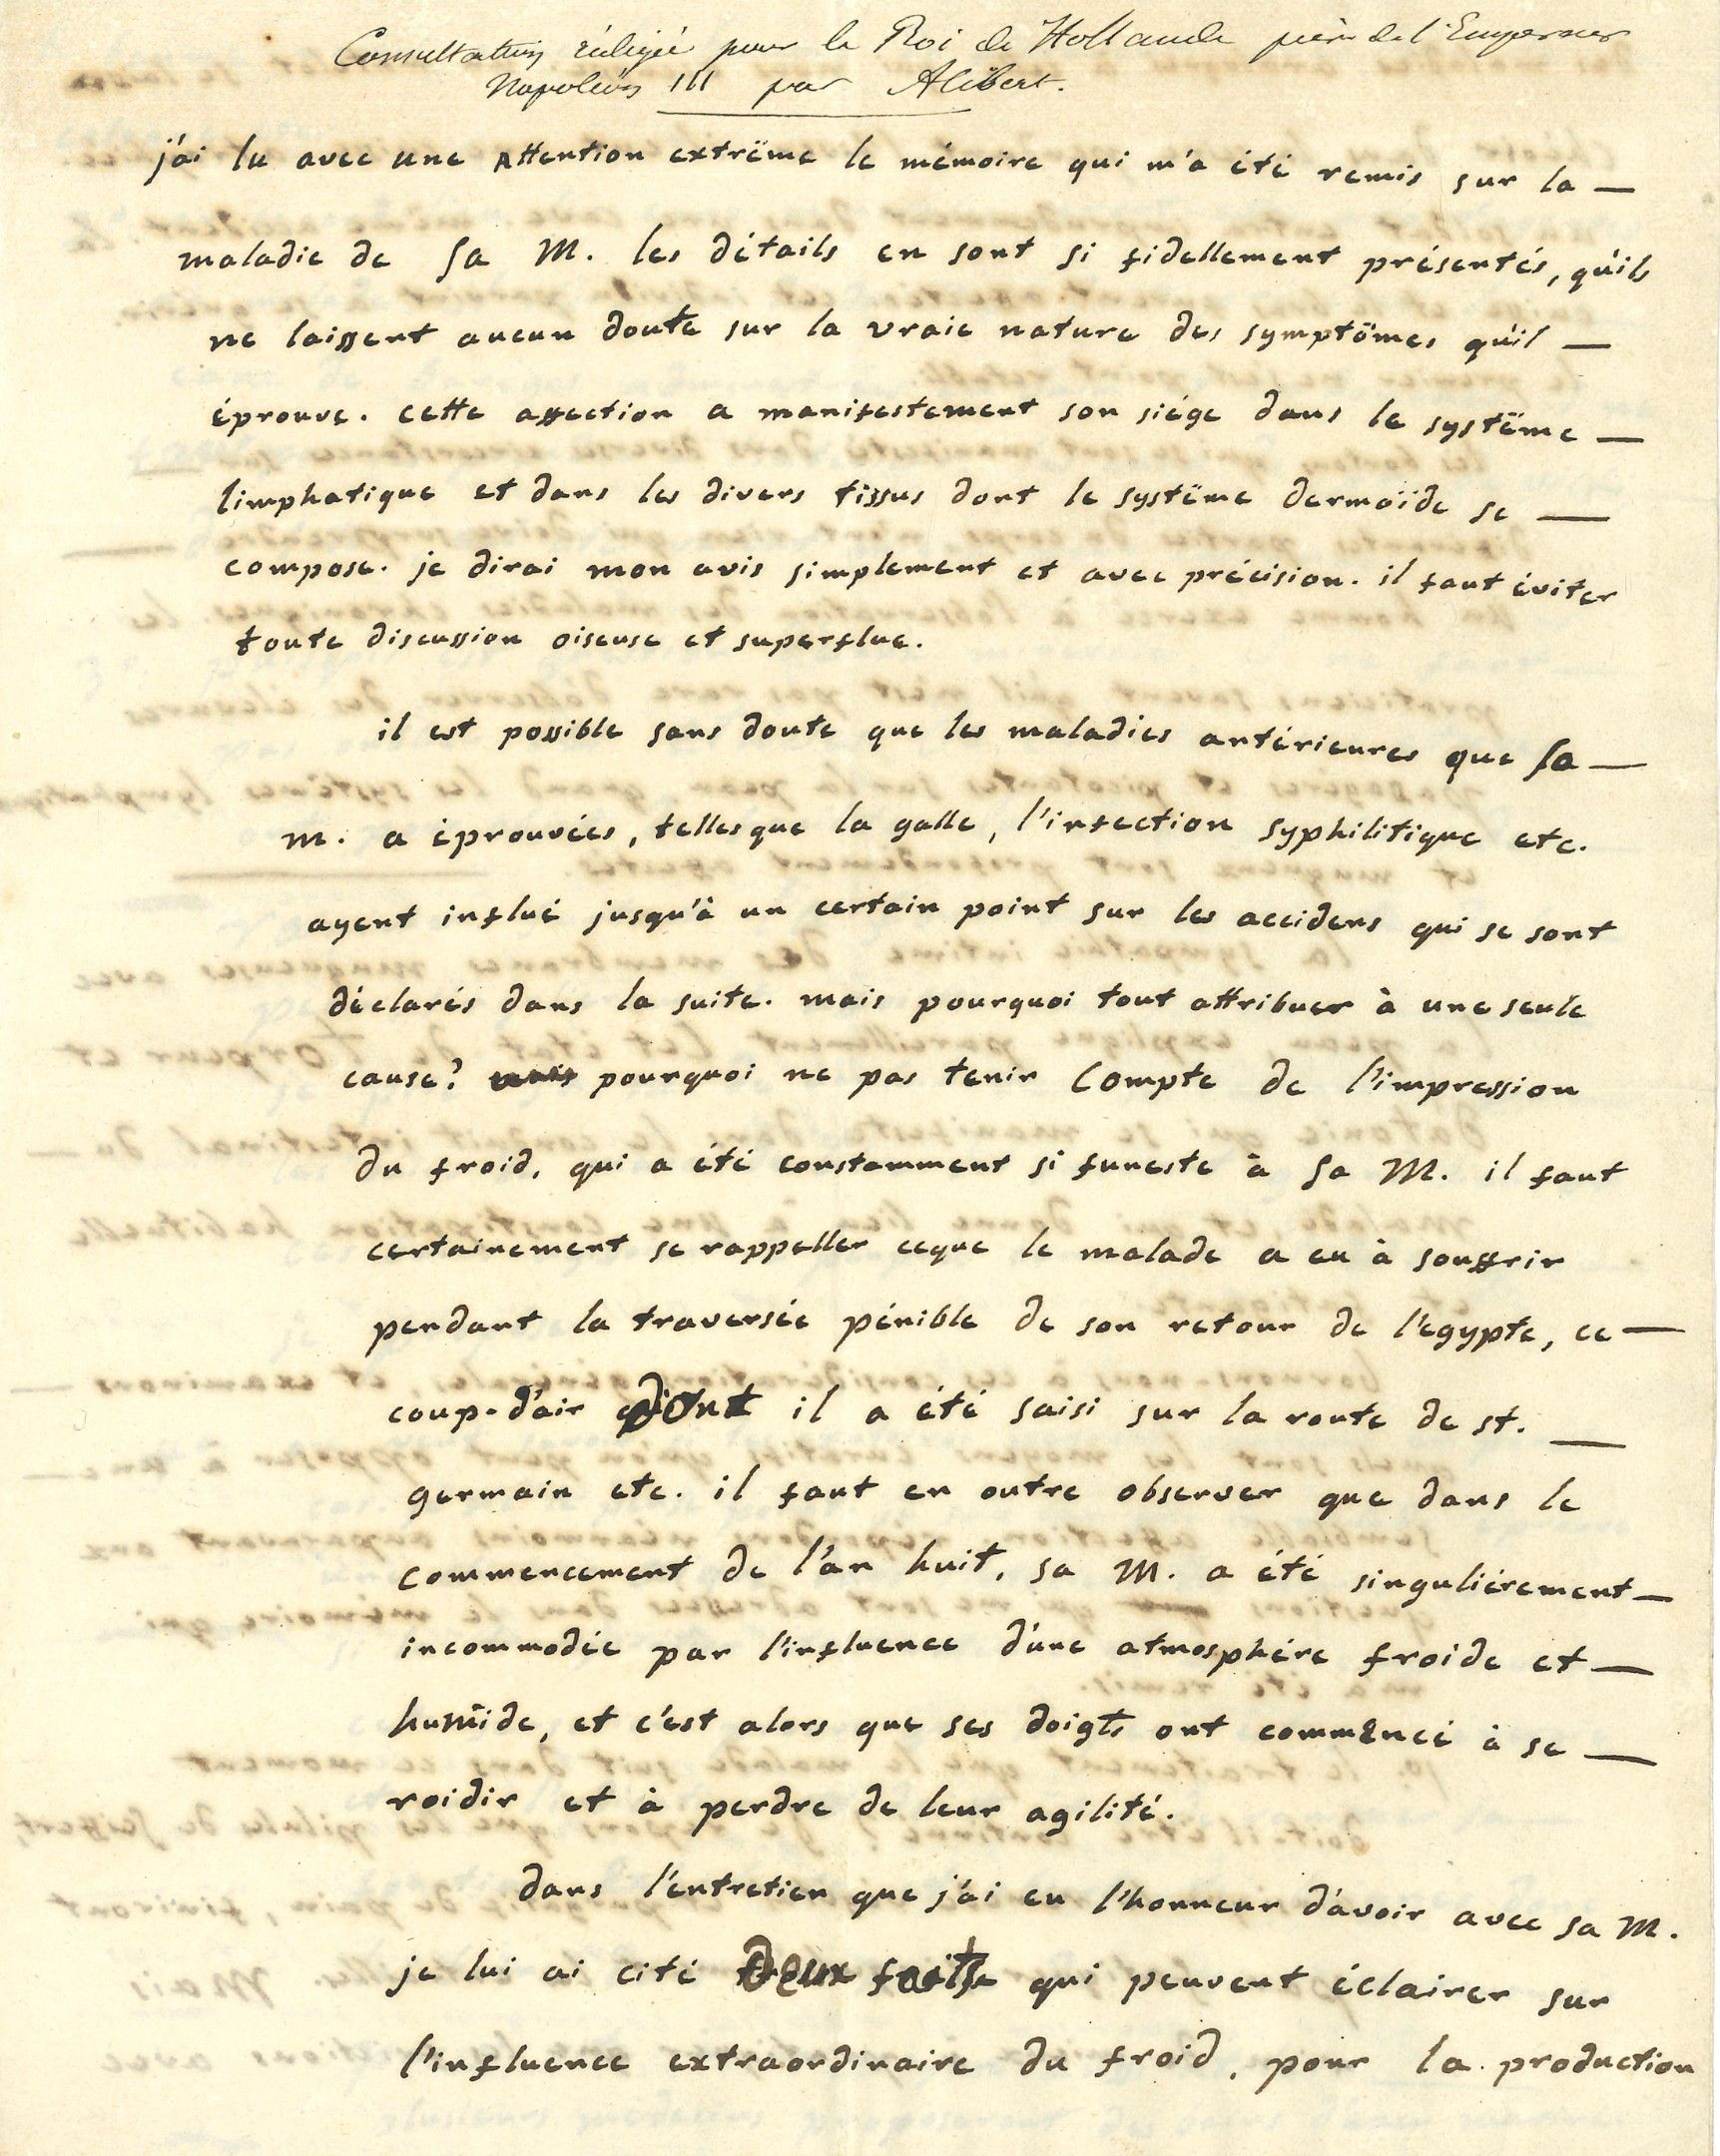 Consultation rédigée pour le Roi de Hollande père de l'Empereur
Napoléon III par Alibert.
j'ai lu avec une Attention extrême le mémoire qui m'a été remis sur la —
maladie de Sa M. les détails en sont si fidellement présentés, qu'ils
ne laissent aucun doute sur la vraie nature des symptômes qu'il —
éprouve. cette affection a manifestement son siége dans le système —
limphatique et dans les divers tissus dont le système dermoïde se —
compose. je dirai mon avis simplement et avec précision. il faut éviter
toute discussion oiseuse et superflue.
il est possible sans doute que les maladies antérieures que Sa —
m. a éprouvées, telles que la galle, l'infection syphilitique etc.
ayent influé jusqu'à un certain point sur les accidens qui se sont
déclarés dans la suite. mais pourquoi tout attribuer à une seule
cause? mais pourquoi ne pas tenir compte de l'impression
du froid, qui a été constamment si funeste à Sa M. il faut
certainement se rappeller ceque le malade a eu à souffrir
pendant la traversée pénible de son retour de l'egypte, ce —
coup-d'air dont il a été saisi sur la route de st. —
germain etc. il faut en outre observer que dans le
commencement de l'an huit, sa M. a été singuliérement —
incommodée par l'influence d'une atmosphére froide et —
humide, et c'est alors que ses doigts ont commencé à se —
roidir et à perdre de leur agilité.
dans l'entretien que j'ai eu l'honneur d'avoir avec sa M.
je lui ai cité deux faits qui peuvent éclairer sur
l'influence extraordinaire du froid, pour la production